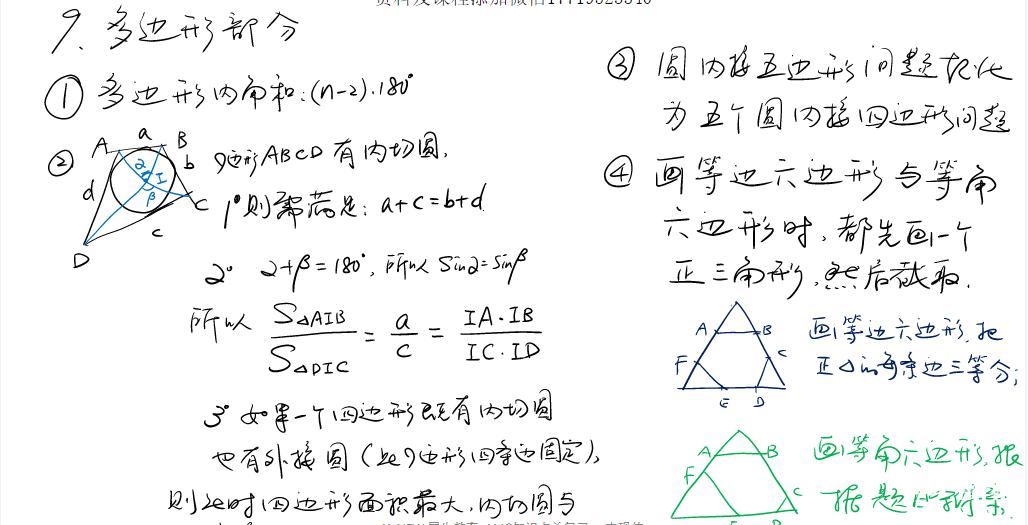 9、多边形部分
① 多边形内角和:(n-2)·180°
② A a B b C c D d I α β
四边形ABCD有内切圆,
1° 则满足: a+c=b+d
2° α+β=180°, 所以 sinα=sinβ
所以 S△AIB/S△DIC = a/c = IA·IB/IC·ID
3° 如果一个四边形既有内切圆
也有外接圆(此四边形四条边固定),
则此时四边形面积最大,内切圆与
③ 圆内接五边形问题转化
为五个圆内接四边形问题
④ 画等边六边形与等角
六边形时,都先画一个
正三角形,然后截取.
A B C D E F
画等边六边形,把
正△的每条边三等分;
A B C F
画等角六边形,根
据题